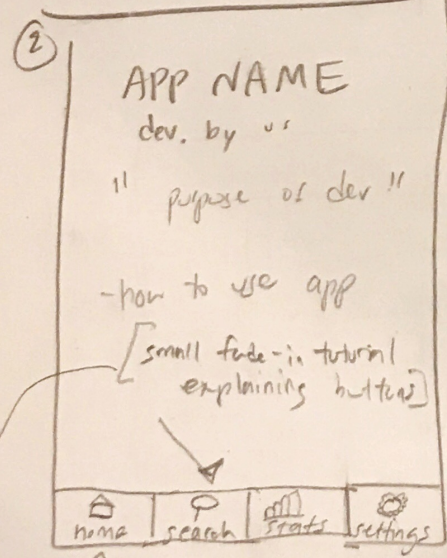 2
APP NAME
dev. by us
" purpose of dev "
-how to use app
[small fade-in tutorial
explaining buttons]
home search stats settings